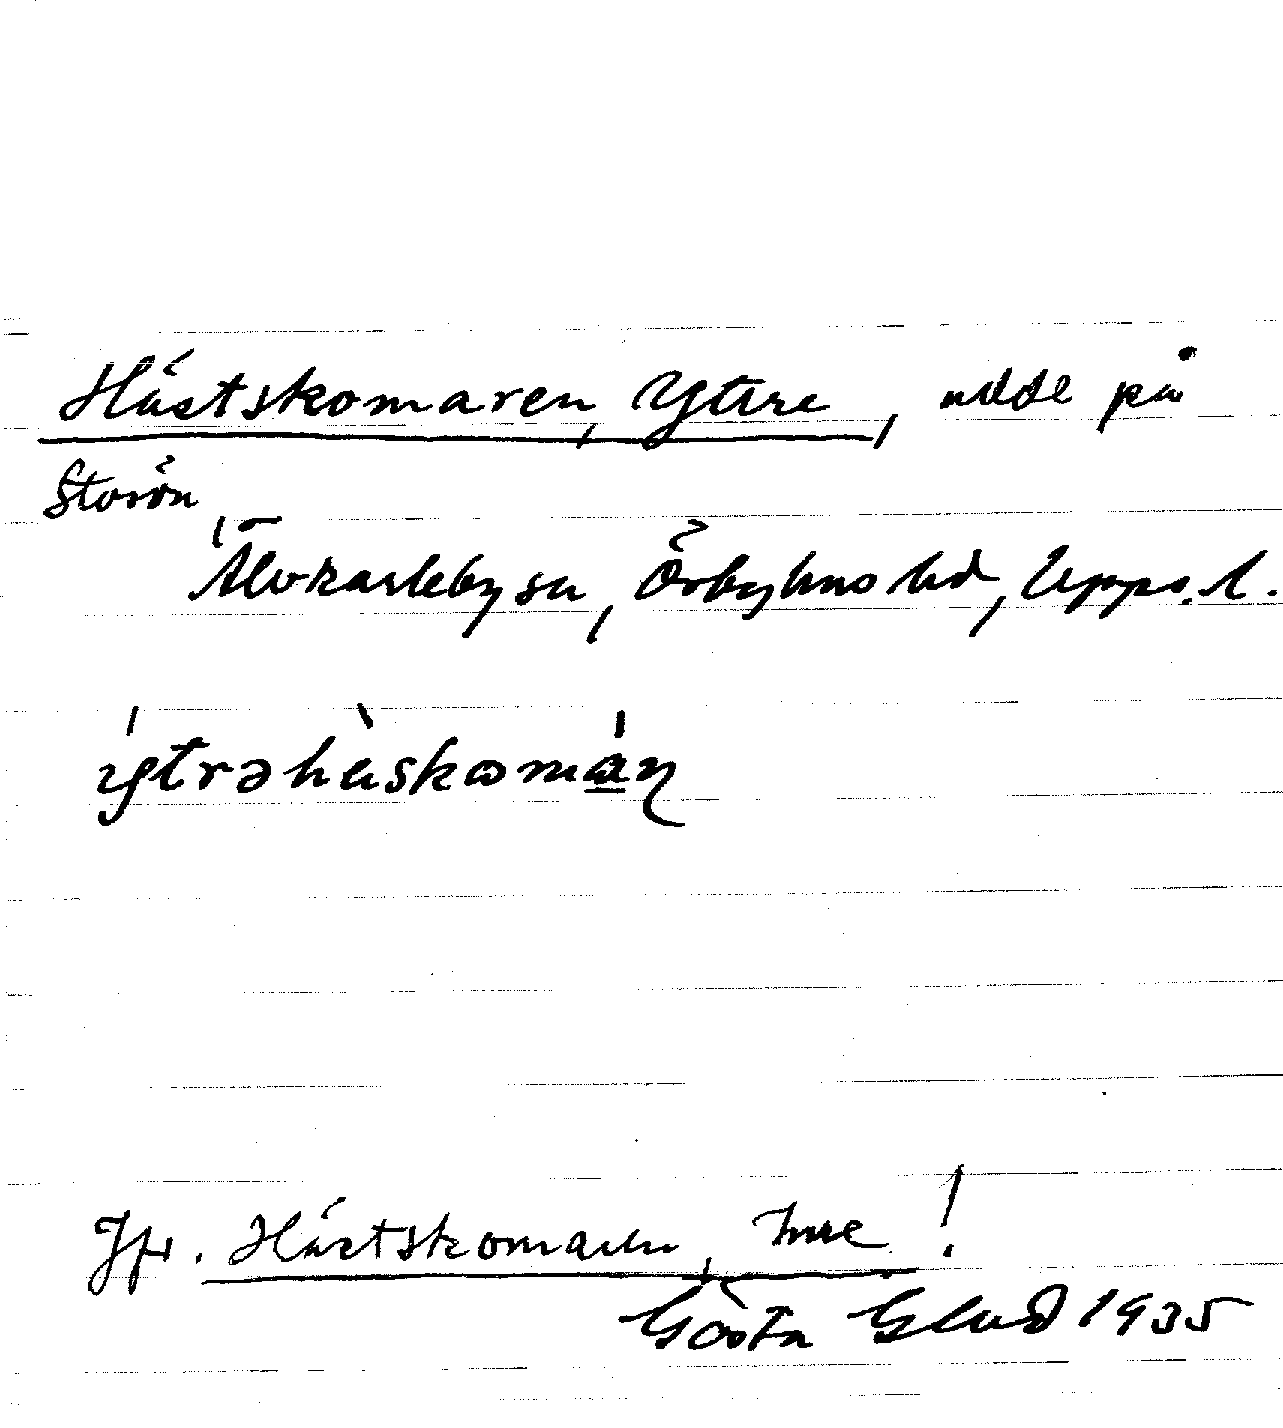 Hästskomaren, Yttre, udde på
Storön
Älvkarleby sn, Örbyhus hd, Upps. l.
ýtrəhàskomán
Jfr. Hästskomaren, Inre!
Gösta Glud 1935